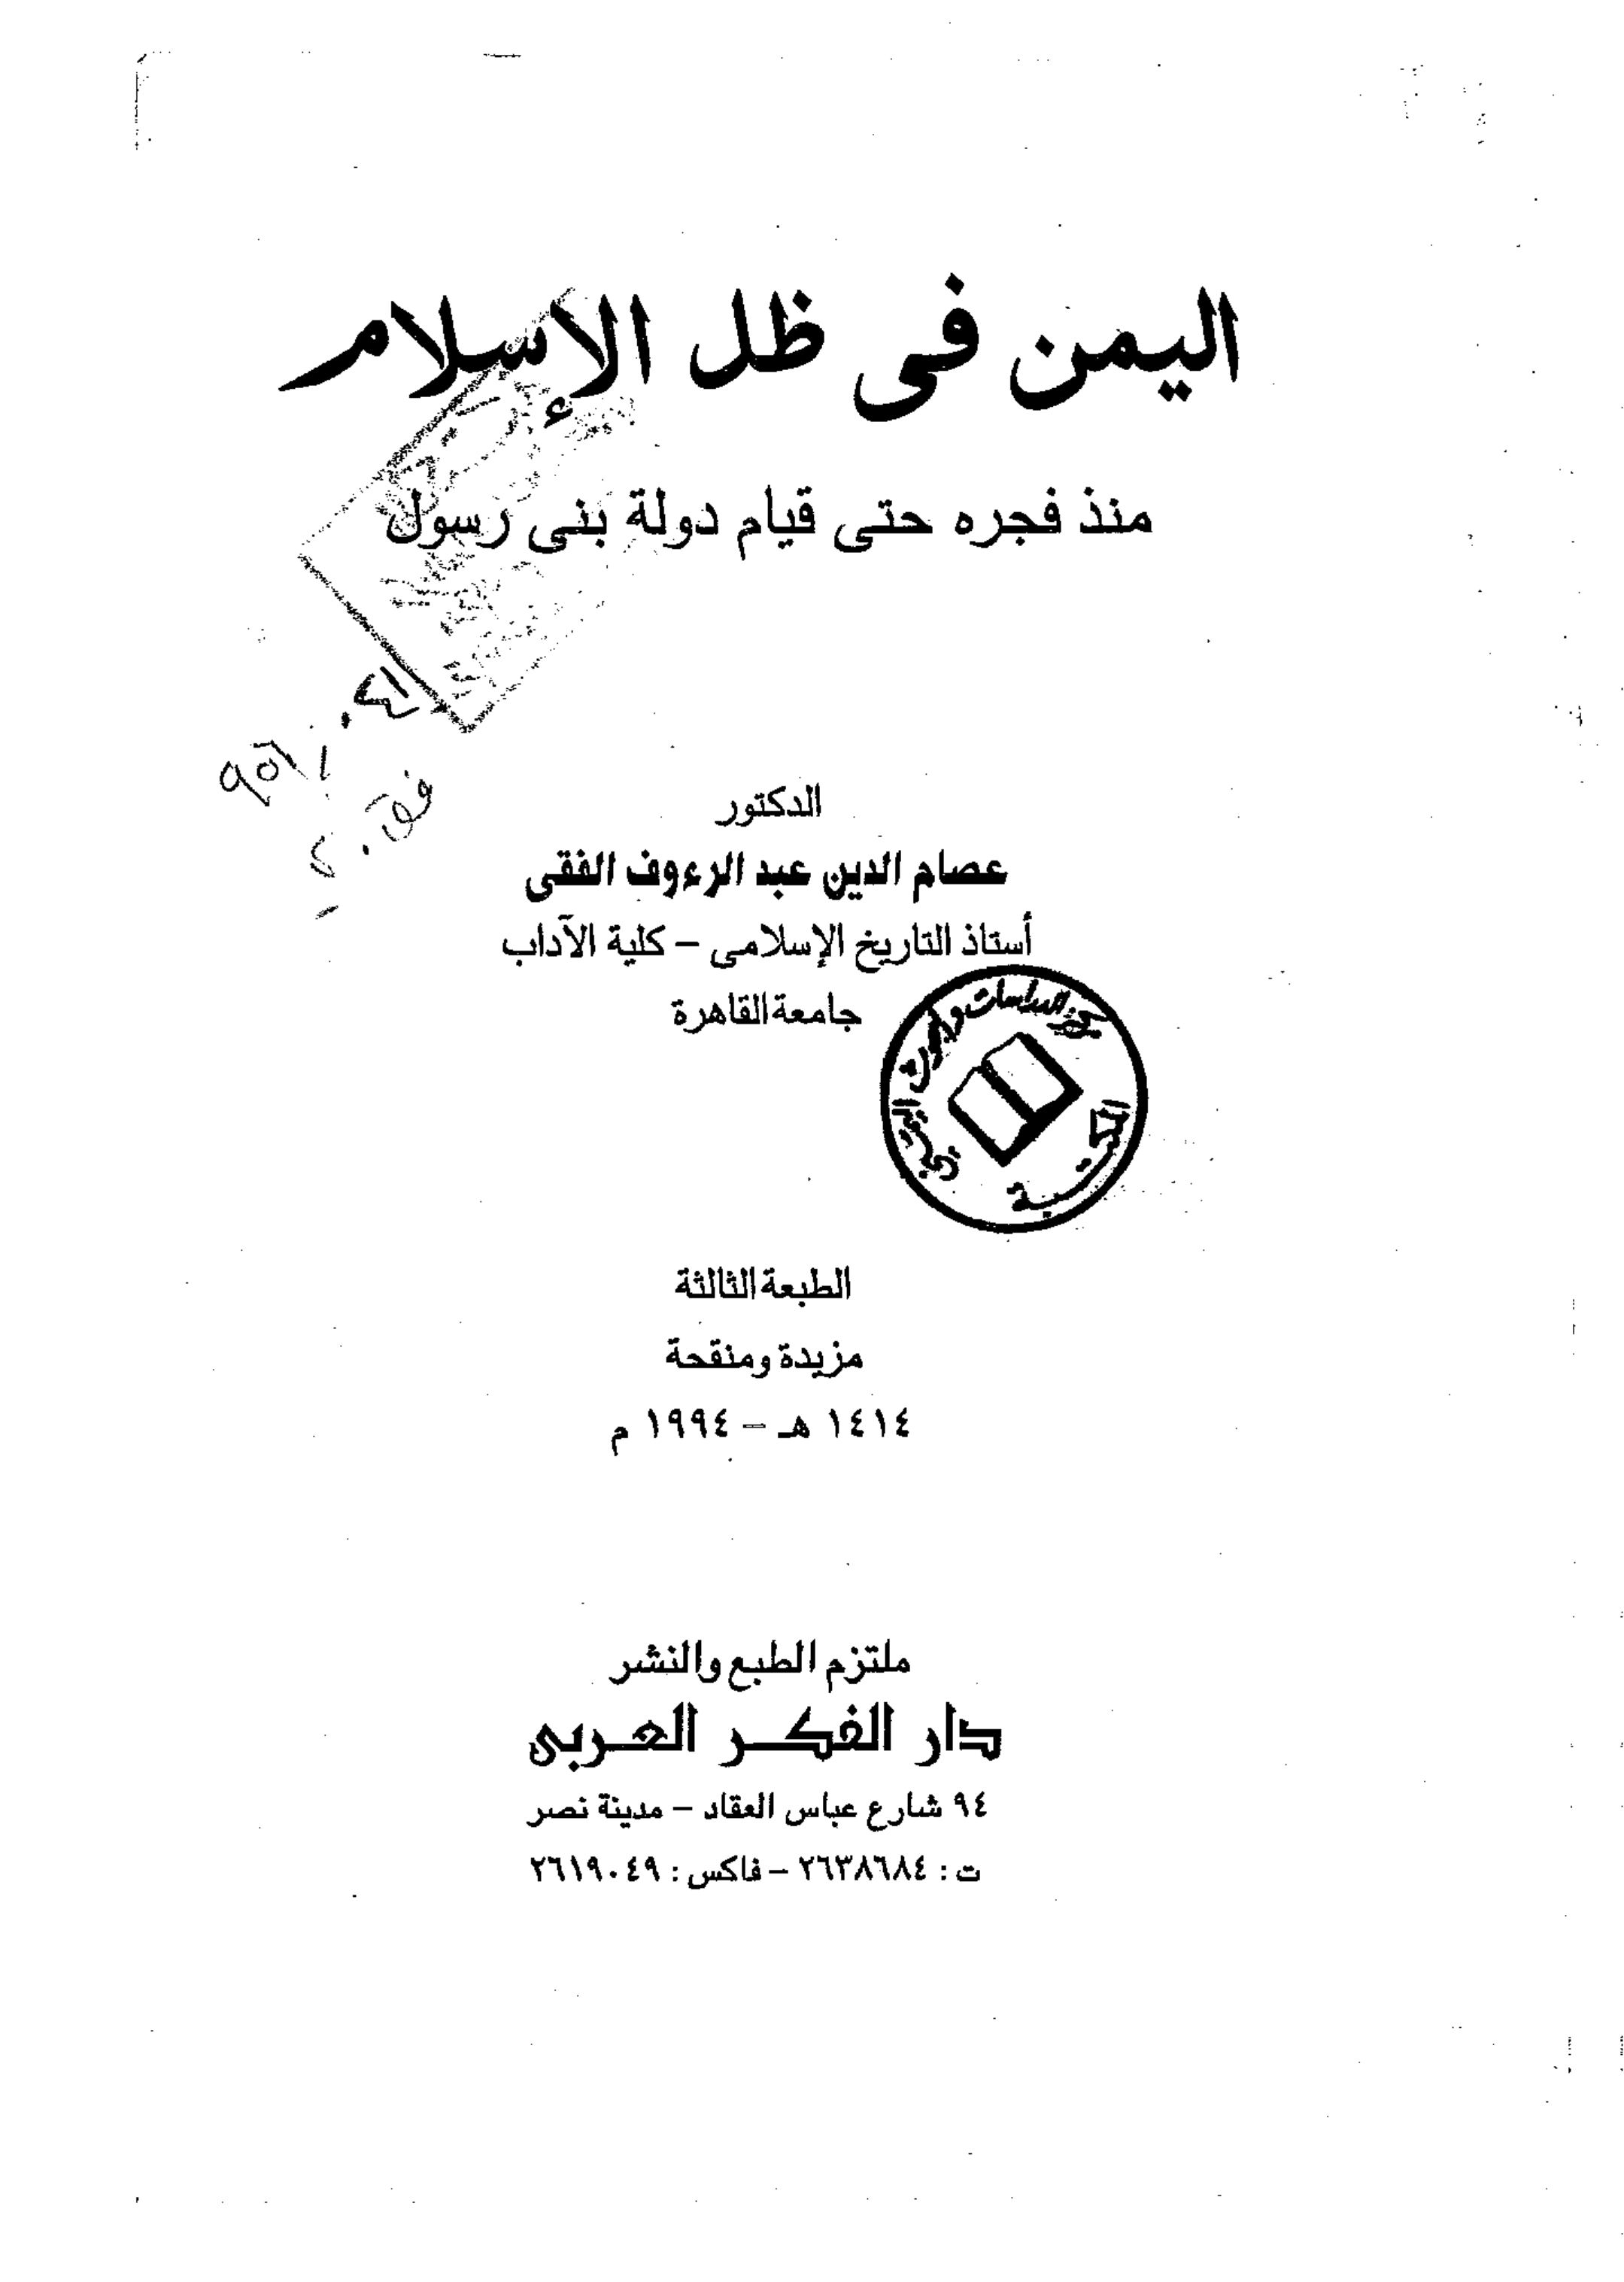 اليمن فى ظل الإسلام
منذ فجره حتى قيام دولة بنى رسول
الدكتور
عصام الدين عبد الرءوف الفقى
أستاذ التاريخ الإسلامى – كلية الآداب
جامعة القاهرة
مركز الدراسات والبحوث اليمني
المكتبة
الطبعة الثالثة
مزيدة ومنقحة
١٤١٤ هـ – ١٩٩٤ م
ملتزم الطبع والنشر
دار الفكر العربى
٩٤ شارع عباس العقاد – مدينة نصر
ت : ٢٦٣٨٦٨٤ – فاكس : ٢٦١٩٠٤٩